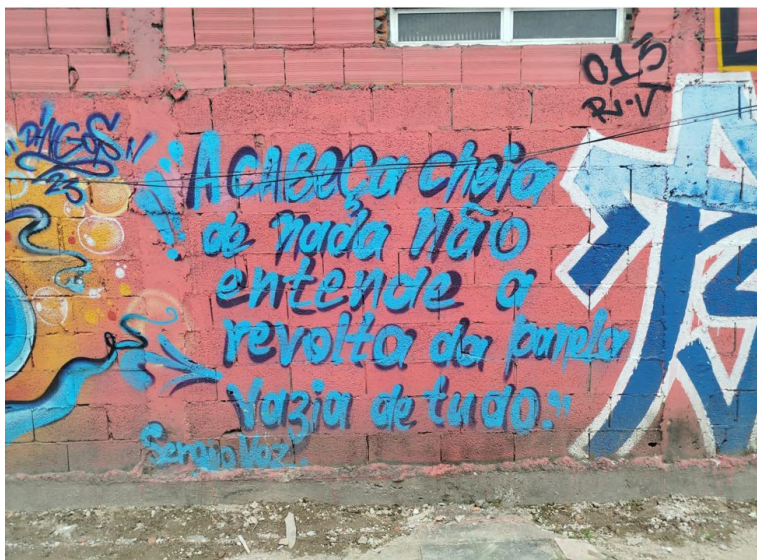 DINGOS
23
013
R.V
"A CABEÇA cheia
de nada não
entende a
revolta da panela
vazia de tudo."
Sergio Vaz